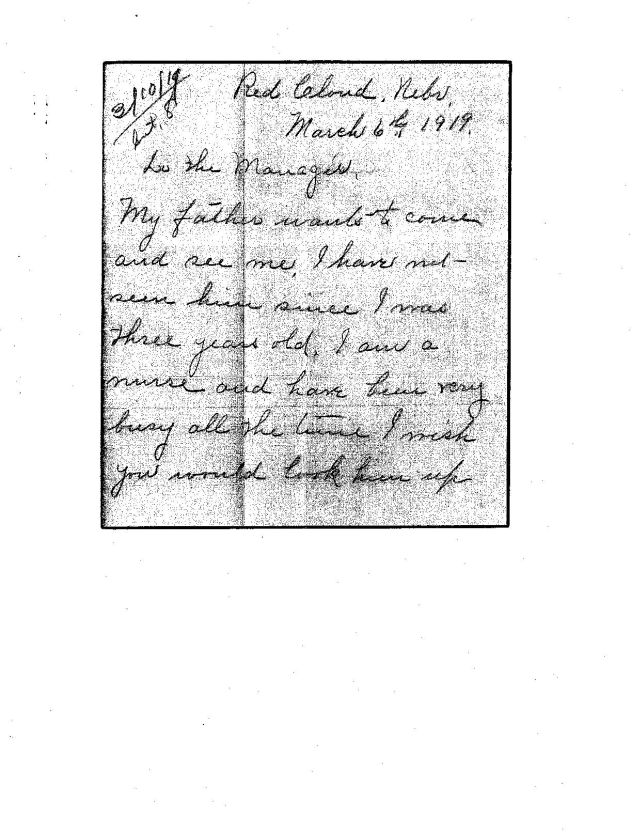 3/10/19
Red Cloud, Nebr.
March 6th 1919.
To the Manager.
My father wants to come
and see me, I have not
seen him since I was
three years old. I am a
nurse and have been very
busy all the time I wish
you would look him up